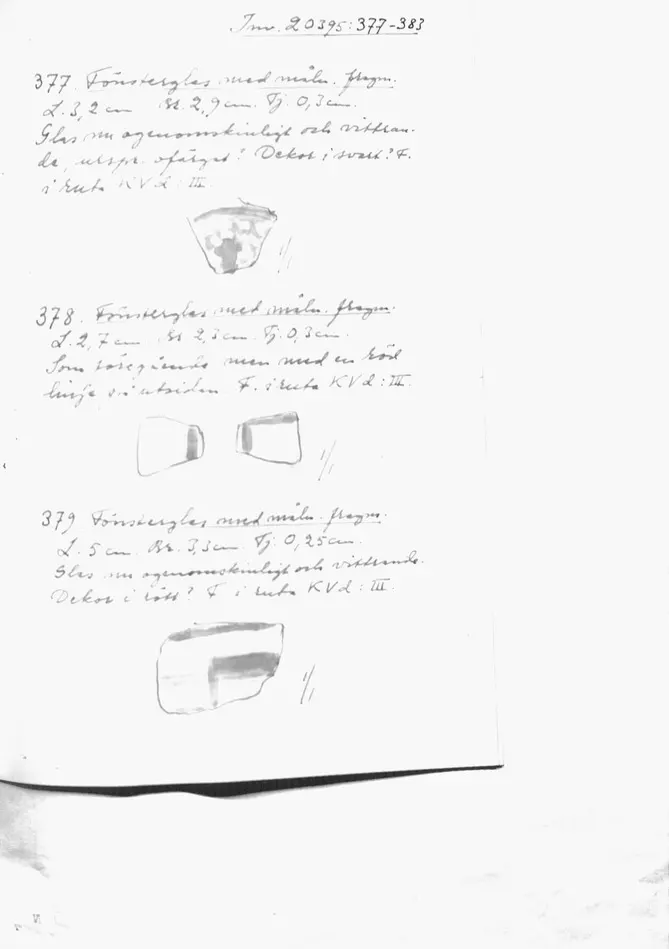 Inv. 20395:377-383
377. Fönsterglas med måln. fragm.
L. 3,2 cm Br. 2,9 cm. Tj. 0,3 cm.
Glas nu ogenomskinligt och vittran-
de, urspr. ofärgat? Dekor i svart? F.
i ruta KVd:III.
1/1
378. Fönsterglas med måln. fragm.
L. 2,7 cm Br 2,3 cm. Tj. 0,3 cm.
Som föregående men med en röd
linje på utsidan F. i ruta KVd:III.
1/1
379 Fönsterglas med måln. fragm.
L. 5 cm. Br. 3,3 cm. Tj. 0,25 cm.
Glas nu ogenomskinligt och vittrande.
Dekor i rött? F i ruta KVd:III.
1/1